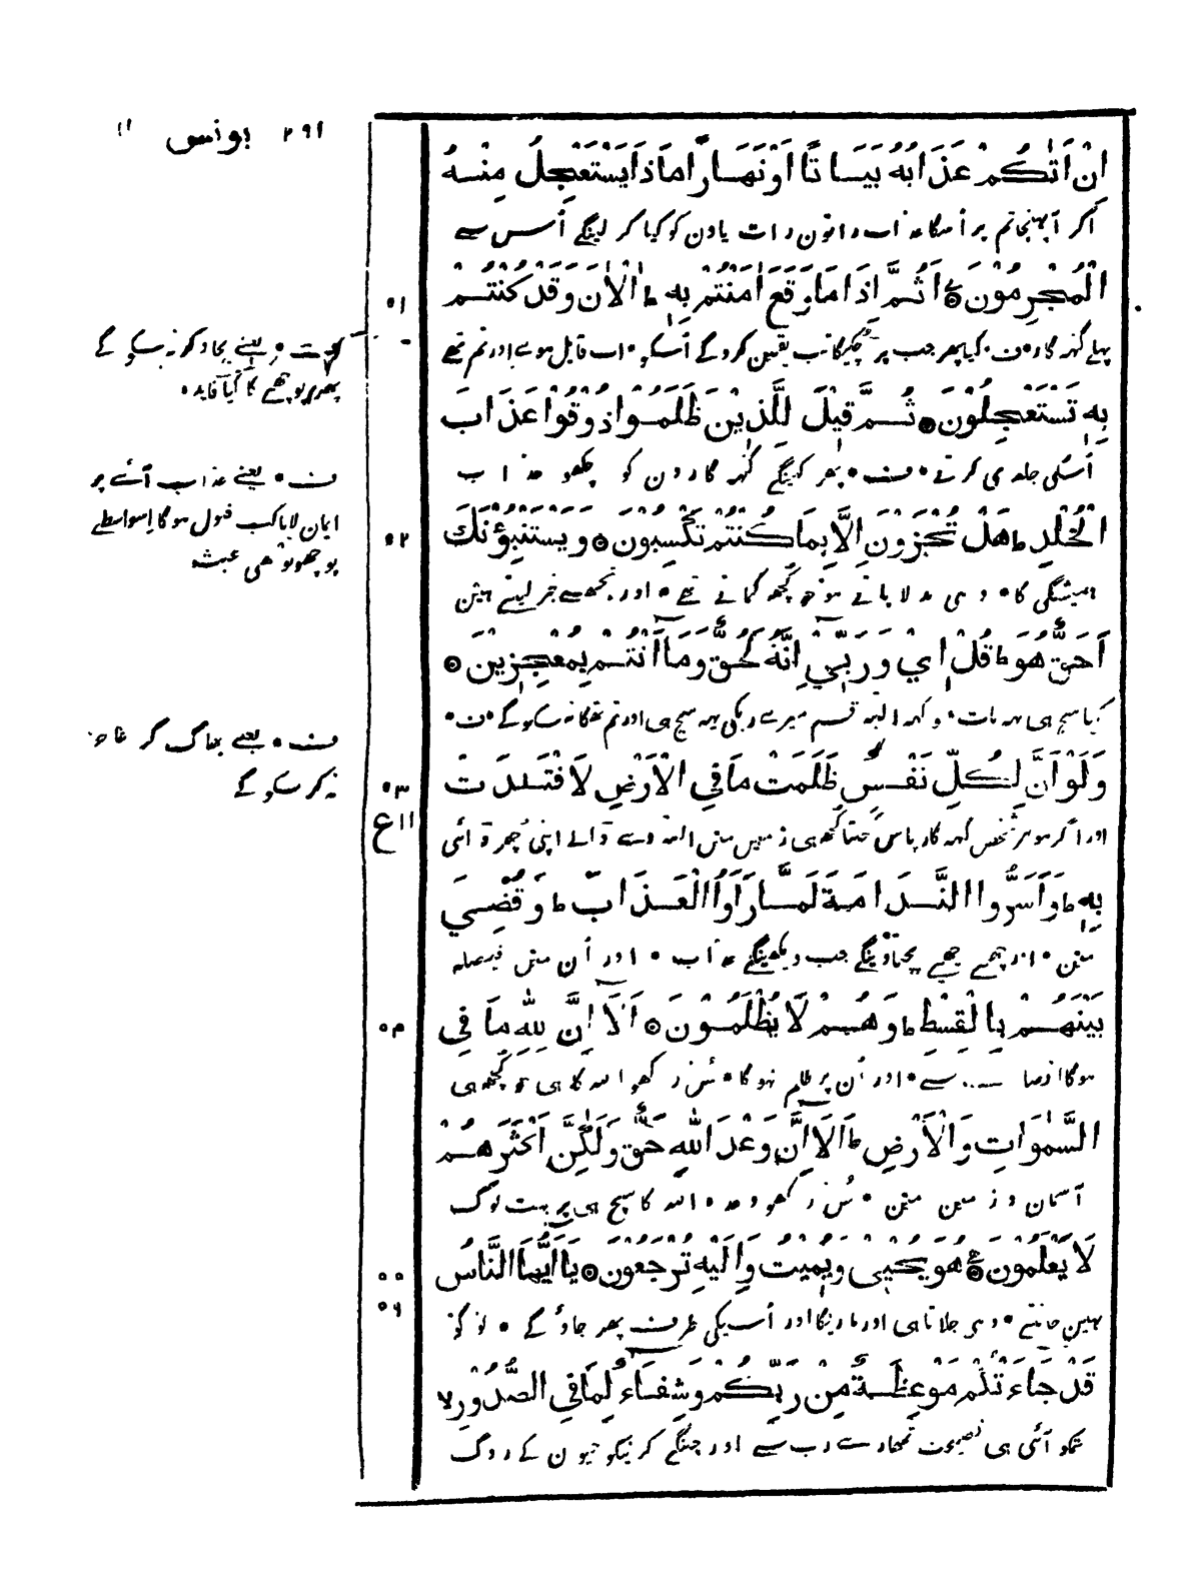 ۲۹۱ یونس ۱۱
اِنْ اَتٰىكُمْ عَذَابُهٗ بَيَاتًا اَوْ نَهَارًا مَا ذَا يَسْتَعْجِلُ مِنْهُ
اگر آ پہنچا تم پر اُسکا عذاب راتون رات یا دن کو کیا کر لینگے اُس سے
الْمُجْرِمُوْنَ ۝ اَثُمَّ اِذَا مَا وَقَعَ اٰمَنْتُمْ بِهٖ ؕ اٰلْاٰنَ وَقَدْ كُنْتُمْ
۵۱
پہلے گنہ گار ۰ ف ۰ کیا پھر جب پر چکیگا تب یقین کروگے اُسکو ۰ اب قایل ہوے اور تم تھے
بِهٖ تَسْتَعْجِلُوْنَ ۝ ثُمَّ قِيْلَ لِلَّذِيْنَ ظَلَمُوْا ذُوْقُوْا عَذَابَ
اُسکی جلدی کرتے ۰ ف ۰ پھر کہینگے گنہ گارون کو چکھو عذاب
الْخُلْدِ ؕ هَلْ تُجْزَوْنَ اِلَّا بِمَا كُنْتُمْ تَكْسِبُوْنَ ۝ وَيَسْتَنْبِؤُنَكَ
۵۲
ہمیشگی کا ۰ وہی بدلا پاتے ہو جو کچھ کماتے تھے ۰ اور تجھسے خبر لیتے ہین
اَحَقٌّ هُوَ ؕ قُلْ اِيْ وَرَبِّيْ اِنَّهٗ لَحَقٌّ وَمَا اَنْتُمْ بِمُعْجِزِيْنَ ۝
کیا سچ ہی یہہ بات ۰ تو کہہ البتہ قسم میرے ربکی یہہ سچ ہی اور تم تھکا نہ سکوگے ۰ ف ۰
وَلَوْ اَنَّ لِكُلِّ نَفْسٍ ظَلَمَتْ مَا فِي الْاَرْضِ لَافْتَدَتْ
۵۳
۱۱ع
اور اگر ہو ہر شخص گنہ گار پاس جتنا کچھ ہی زمین مین البتہ دے ڈالے اپنی چھڑوائی
بِهٖ ؕ وَاَسَرُّوا النَّدَامَةَ لَمَّا رَاَوُا الْعَذَابَ ؕ وَقُضِيَ
مین ۰ اور چھپے چھپے پچتاوینگے جب دیکھینگے عذاب ۰ اور اُن مین فیصلہ
بَيْنَهُمْ بِالْقِسْطِ ؕ وَهُمْ لَا يُظْلَمُوْنَ ۝ اَلَا اِنَّ لِلّٰهِ مَا فِي
۵۴
ہوگا انصاف سے ۰ اور اُن پر ظلم نہوگا ۰ سُن رکھو اللہ کا ہی جو کچھ ہی
السَّمٰوَاتِ وَالْاَرْضِ ؕ اَلَا اِنَّ وَعْدَ اللّٰهِ حَقٌّ وَلٰكِنَّ اَكْثَرَهُمْ
آسمان و زمین مین ۰ سُن رکھو وعدہ اللہ کا سچ ہی پر بہت لوگ
لَا يَعْلَمُوْنَ ۝ هُوَ يُحْيٖي وَيُمِيْتُ وَاِلَيْهِ تُرْجَعُوْنَ ۝ يَا اَيُّهَا النَّاسُ
۵۵
۵۶
نہین جانتے ۰ وہی جلاتا ہی اور ماریگا اور اُسیکی طرف پھر جاؤگے ۰ لوگو
قَدْ جَاءَتْكُمْ مَوْعِظَةٌ مِنْ رَبِّكُمْ وَشِفَاءٌ لِمَا فِي الصُّدُوْرِ لا
تمکو آئی ہی نصیحت تمھارے رب سے اور چنگے کرنیکو جیون کے روگ
ف ۰ یعنے بچاو کر نہ سکوگے
پھر پوچھے کا کیا فایدہ ۰
ف ۰ یعنے عذاب آئے پر
ایمان لانا کب قبول ہوگا اِسواسطے
پوچھو تو بھی عبث
ف ۰ یعنے بھاگ کر عاجز
نہ کر سکوگے